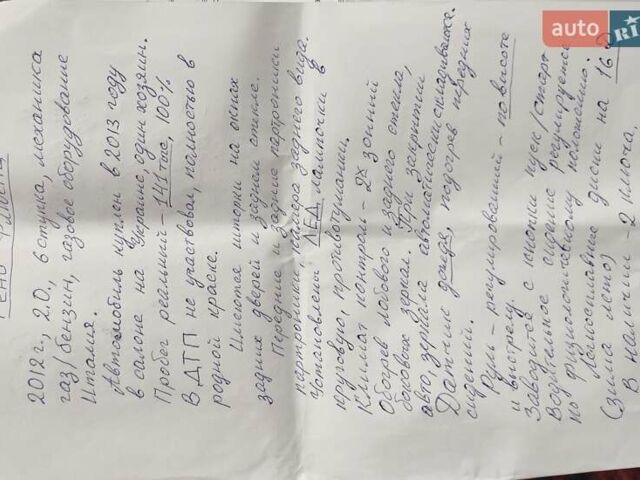 2012 г., 2.0., 6 ступка, механика
газ/бензин, газовое оборудование
Италия.
Автомобиль куплен в 2013 году
в салоне на Украине, один хозяин.
Пробег реальний - 141 тыс, 100%
В ДТП не участвовал, полностью в
родной краске.
Имеются шторки на окнах
задних дверей и заднем стекле.
Передние и задние партроники
партроники, камера заднего вида.
Установлены ЛЕД лампочки в
круговую, противотуманки.
Климат контроль - 2х зонный
Обогрев лобового и заднего стекла,
боковых зеркал. При закрытии
авто, зеркала автоматически складываются.
Датчик дождя, подогрев передних
сидений.
Руль - регулированний - по высоте
и внутрь.
Заводится с кнопки пуск/старт
Водительское сидение регулируется
по физиологическому положению.
Легкосплавные диски на 16
(зима лето)
В наличии - 2 ключа.
auto RIA